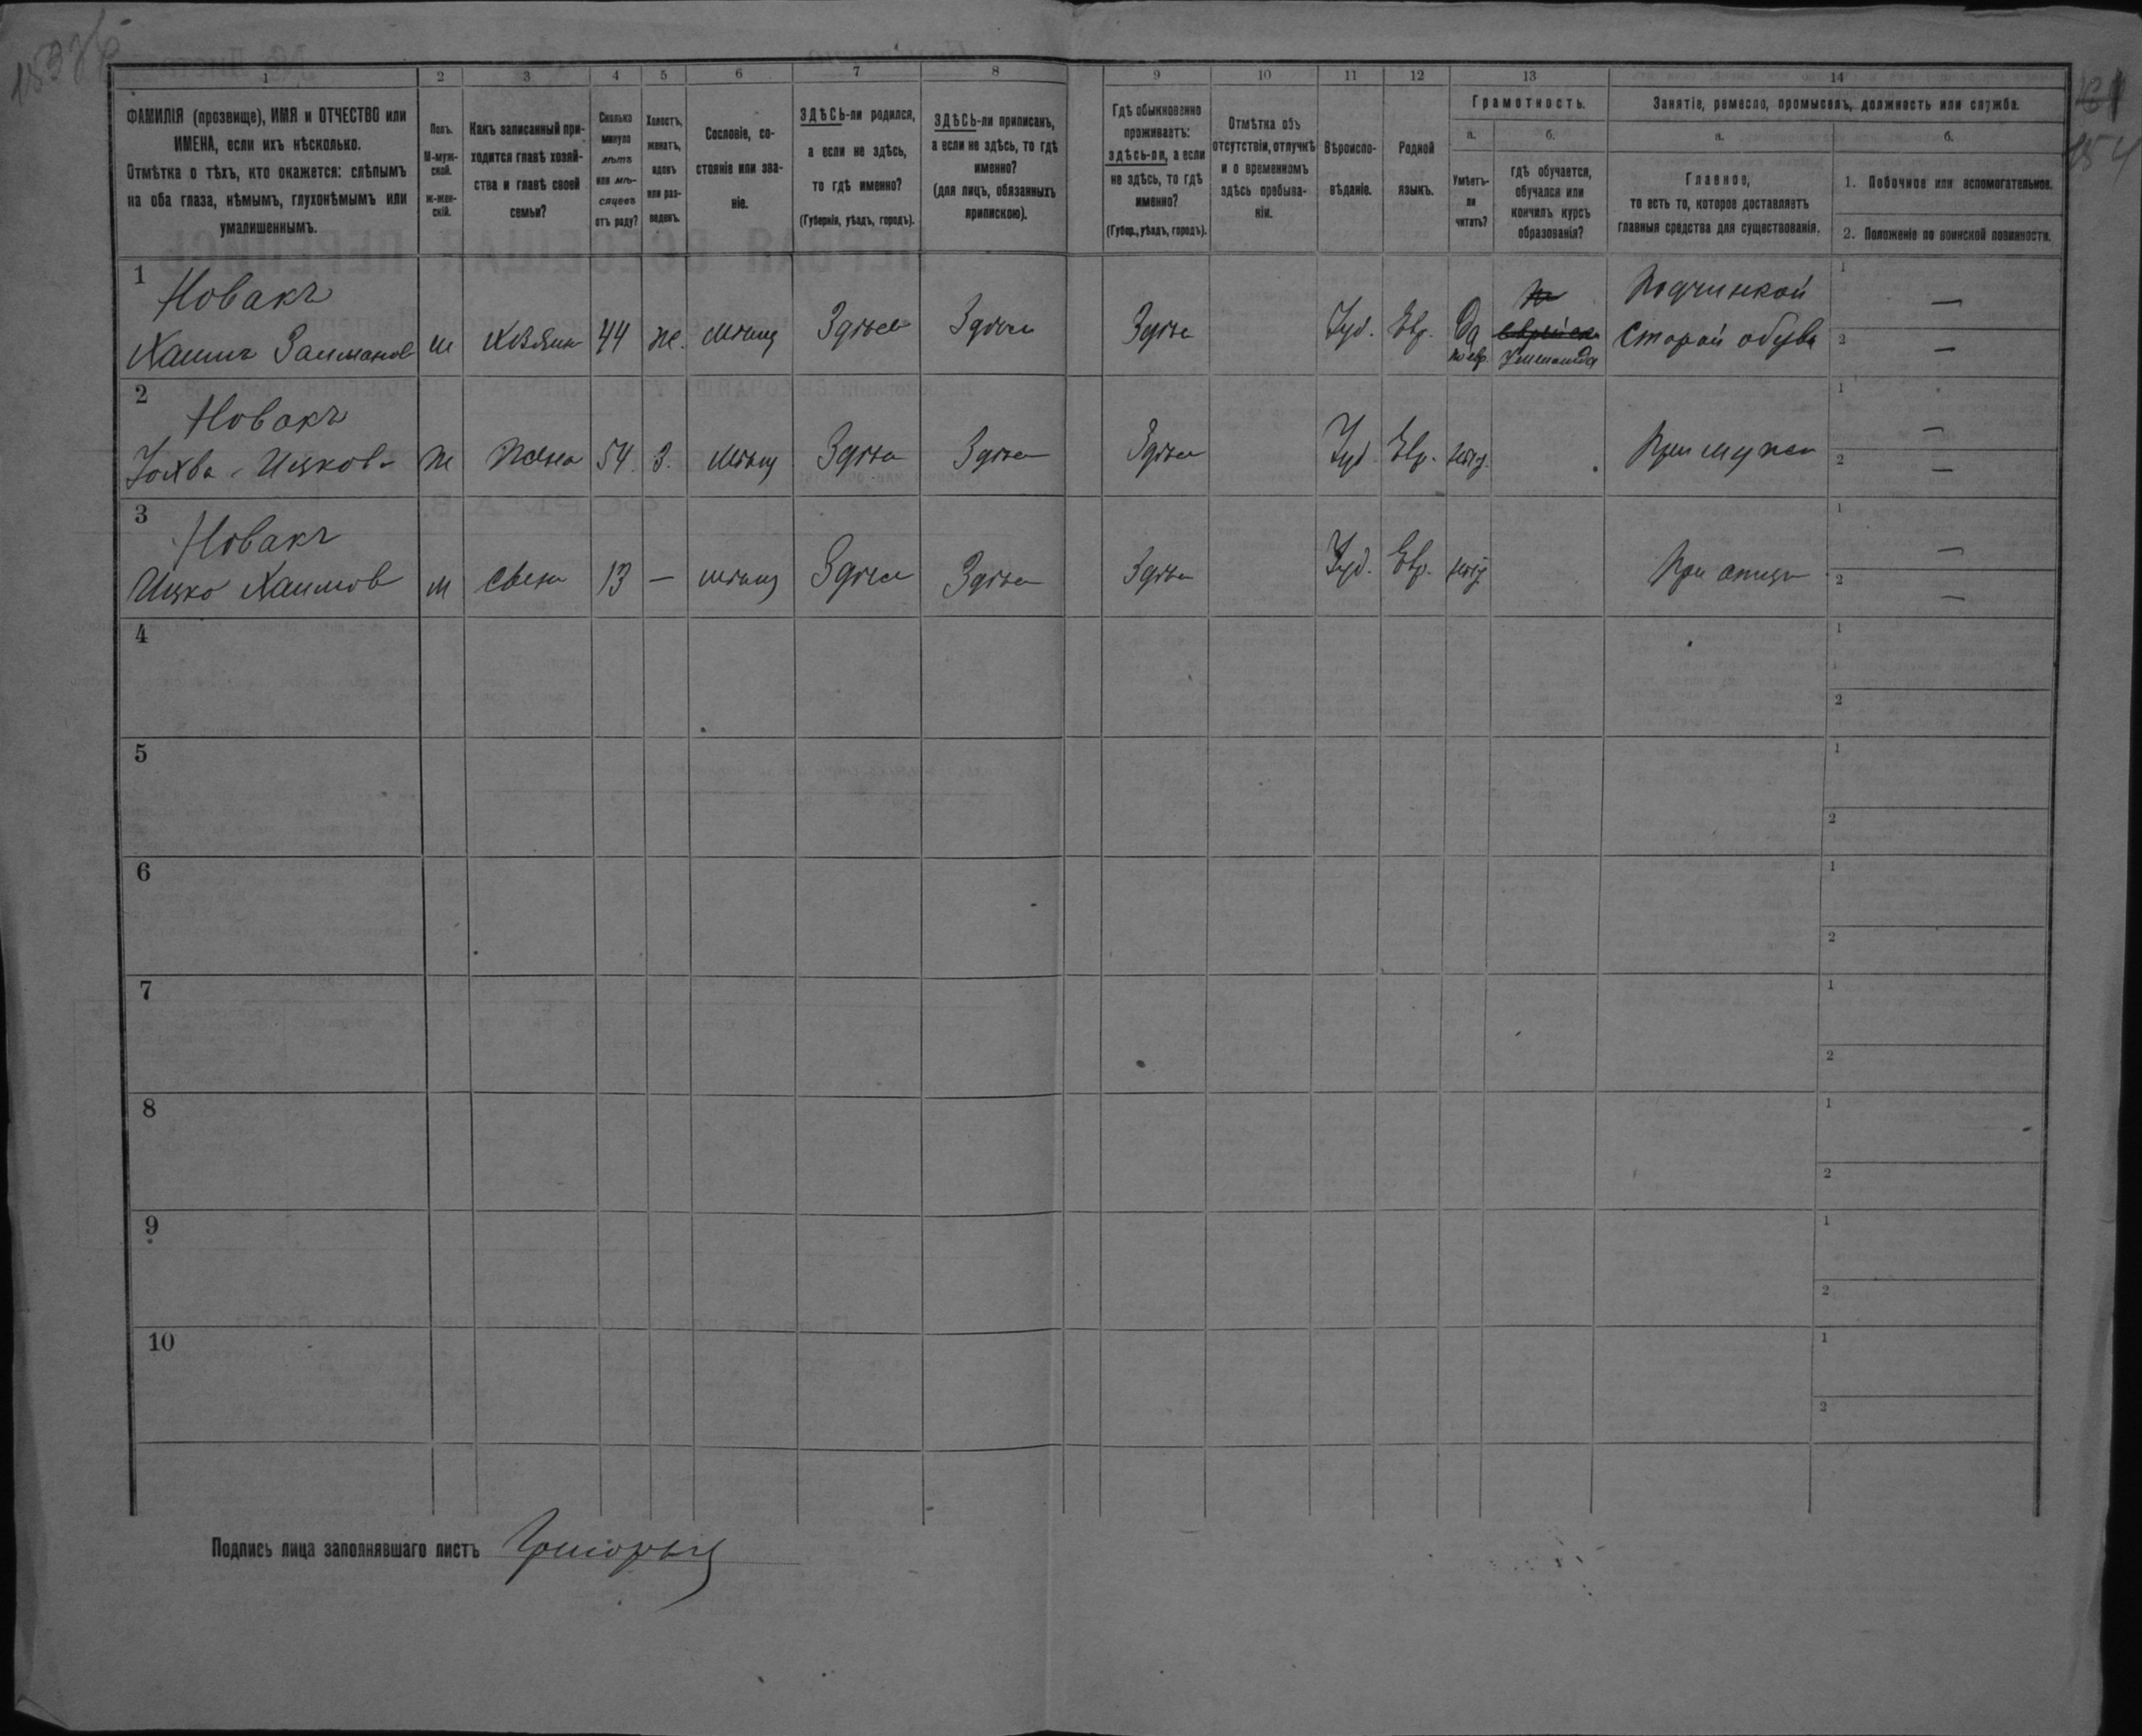 153об
161
154
1
2
3
4
5
6
7
8
9
10
11
12
13
14
ФАМИЛІЯ (прозвище), ИМЯ и ОТЧЕСТВО или
ИМЕНА, если ихъ нѣсколько.
Отмѣтка о тѣхъ, кто окажется: слѣпымъ
на оба глаза, нѣмымъ, глухонѣмымъ или
умалишеннымъ.
Полъ.
М-муж-
ской.
ж-жен-
скій.
Какъ записанный при-
ходится главѣ хозяй-
ства и главѣ своей
семьи?
Сколько
минуло
лѣтъ
или мѣ-
сяцевъ
отъ роду?
Холостъ,
женатъ,
вдовъ
или раз-
веденъ.
Сословіе, со-
стояніе или зва-
ніе.
ЗДѢСЬ-ли родился,
а если не здѣсь,
то гдѣ именно?
(Губернія, уѣздъ, городъ).
ЗДѢСЬ-ли приписанъ,
а если не здѣсь, то гдѣ
именно?
(для лицъ, обязанныхъ
припискою).
Гдѣ обыкновенно
проживаетъ:
здѣсь-ли, а если
не здѣсь, то гдѣ
именно?
(Губер., уѣздъ, городъ).
Отмѣтка объ
отсутствіи, отлучкѣ
и о временномъ
здѣсь пребыва-
ніи.
Вѣроиспо-
вѣданіе.
Родной
языкъ.
Грамотность.
а.
б.
Умѣетъ-
ли
читать?
гдѣ обучается,
обучался или
кончилъ курсъ
образованія?
Занятіе, ремесло, промыселъ, должность или служба.
а.
б.
Главное,
то есть то, которое доставляетъ
главныя средства для существованія.
1. Побочное или вспомогательное.
2. Положеніе по воинской повинности.
1
Новакъ
Хаимъ Залмановъ
м
Хозяин
44
же.
Мѣщ
Здѣсь
Здѣсь
Здѣсь
Іуд.
Евр.
Да
по евр.
Починкой
Старой обуви
1 —
2 —
2
Новакъ
Ицкова
ж
Жена
54.
З.
Мѣщ
Здѣсь
Здѣсь
Здѣсь
Іуд
Евр.
нѣт.
При мужѣ
1 —
2 —
3
Новакъ
Ицко Хаимов
м
Сынъ
13
—
мѣщ
Здѣсь
Здѣсь
Здѣсь
Іуд.
Евр.
нѣт
При отцѣ
1 —
2 —
4
1
2
5
1
2
6
1
2
7
1
2
8
1
2
9
1
2
10
1
2
Подпись лица заполнявшаго листъ